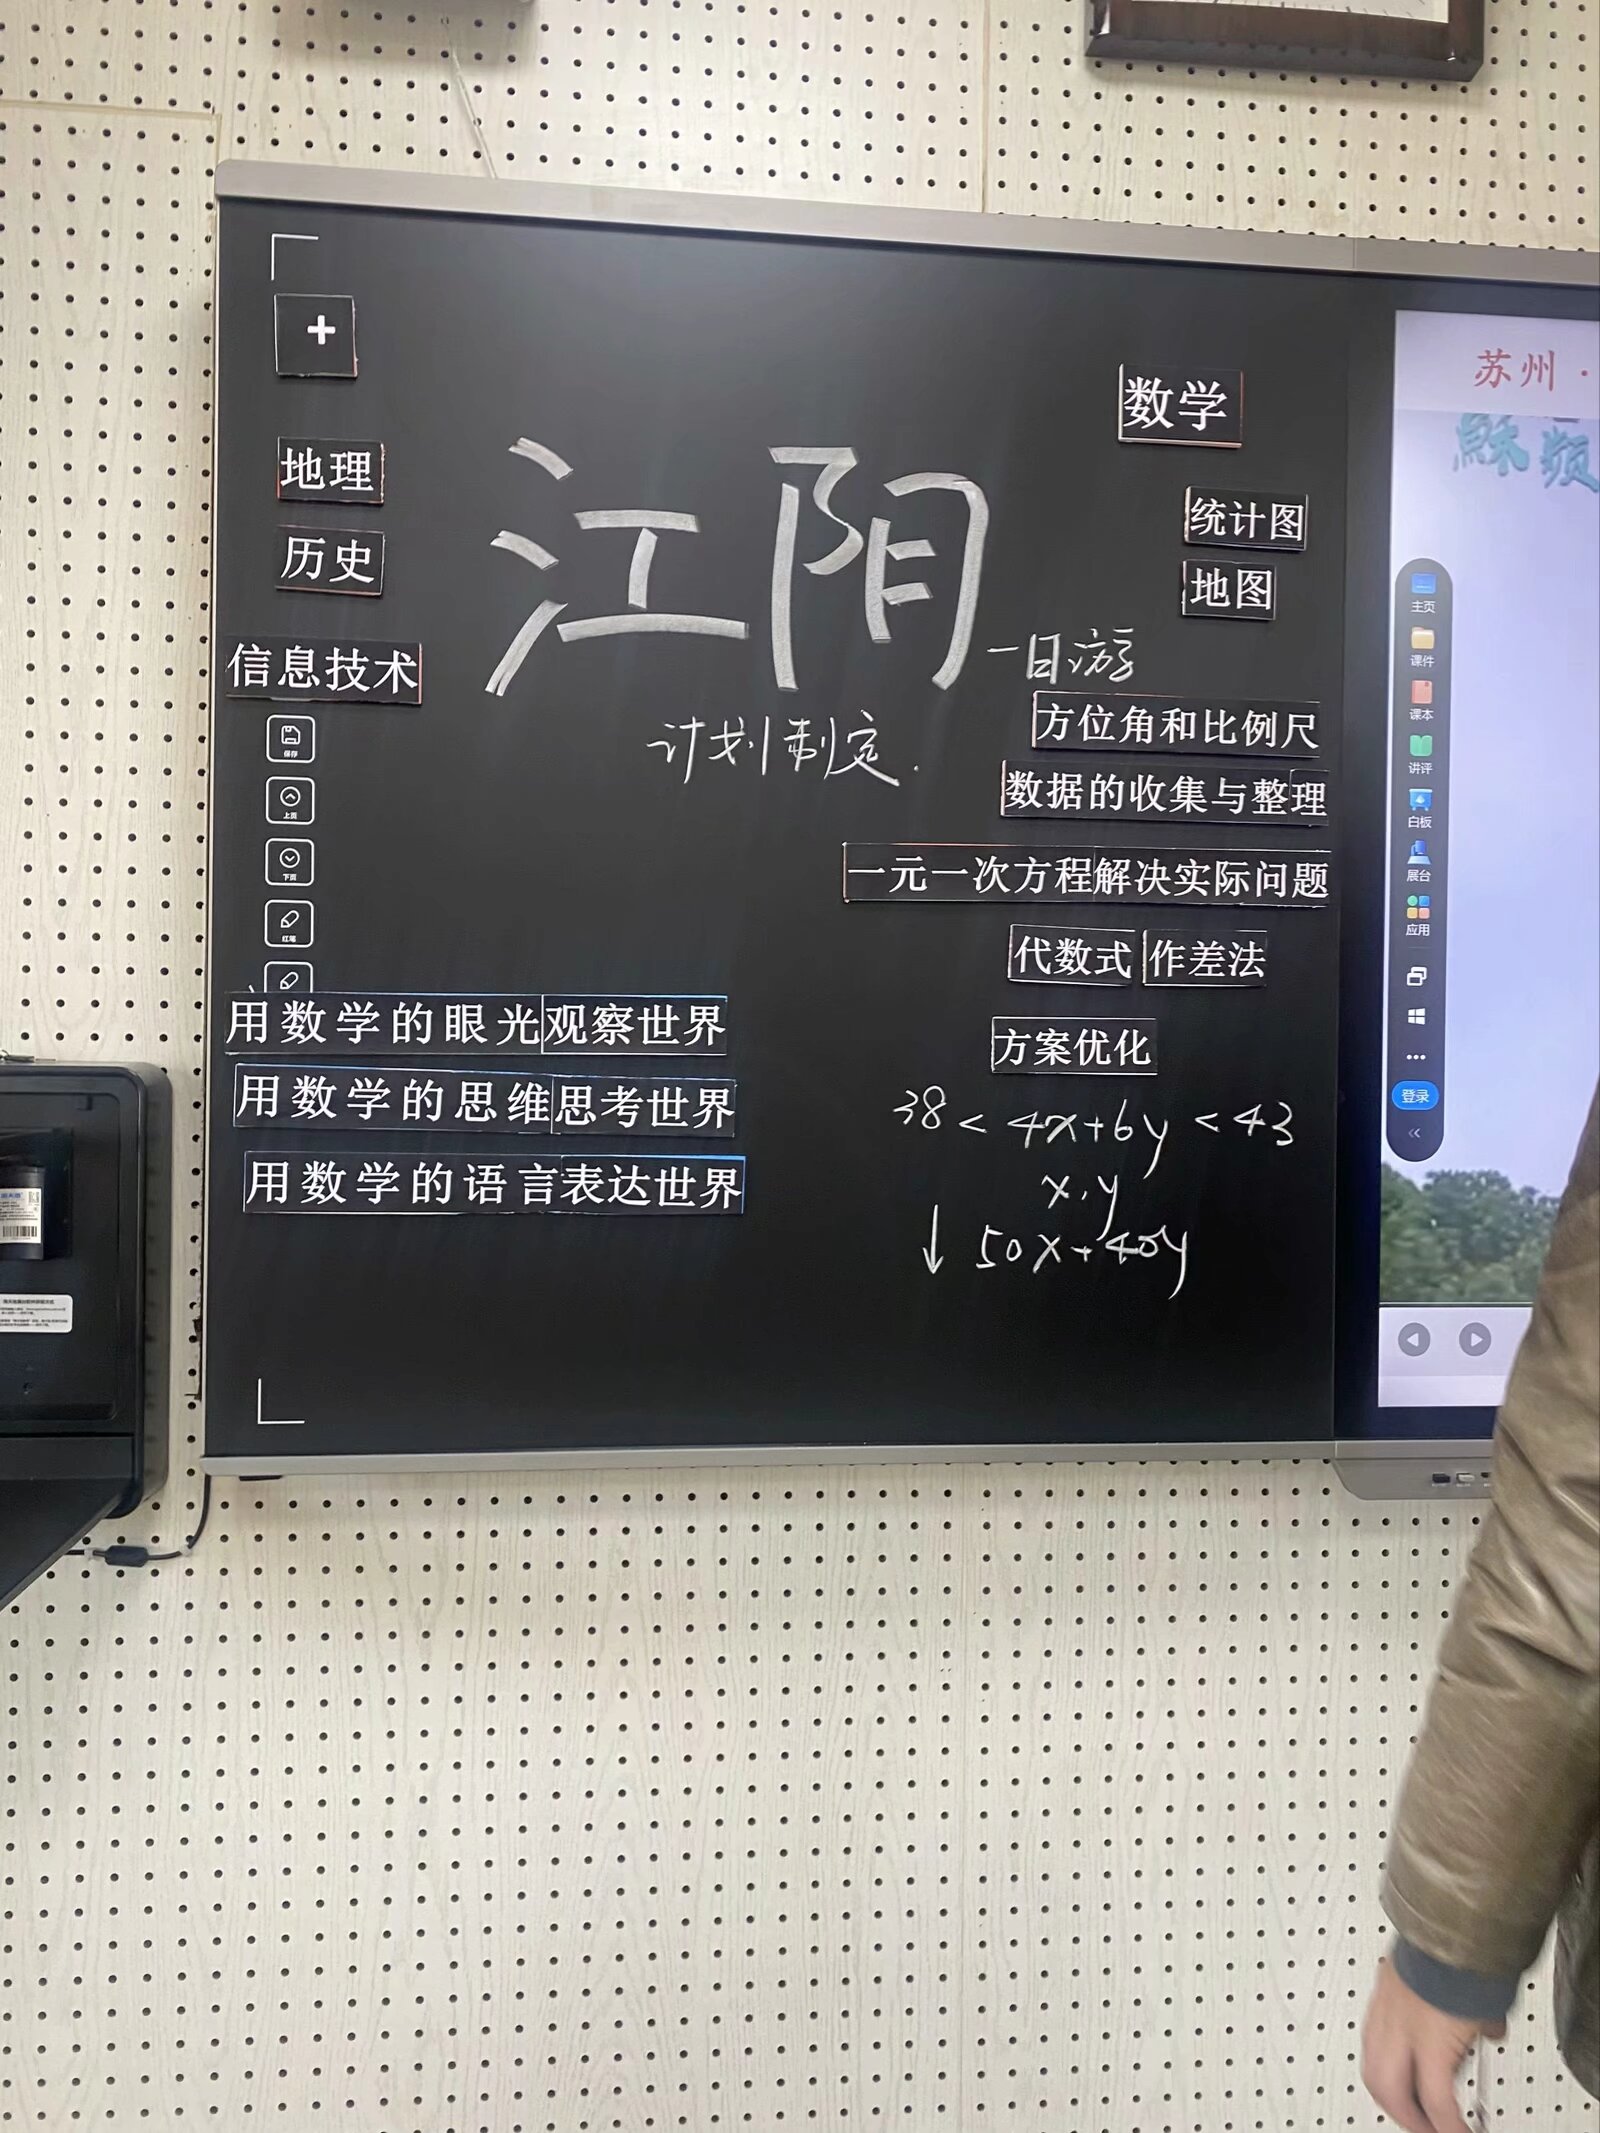 +
地理
历史
信息技术
江阴
一日游
计划制定.
保存
上页
下页
红笔
用数学的眼光观察世界
用数学的思维思考世界
用数学的语言表达世界
数学
统计图
地图
方位角和比例尺
数据的收集与整理
一元一次方程解决实际问题
代数式 作差法
方案优化
38 < 4x+6y < 43
x,y
↓ 50x+40y
苏州·
主页
课件
课本
讲评
白板
展台
应用
登录